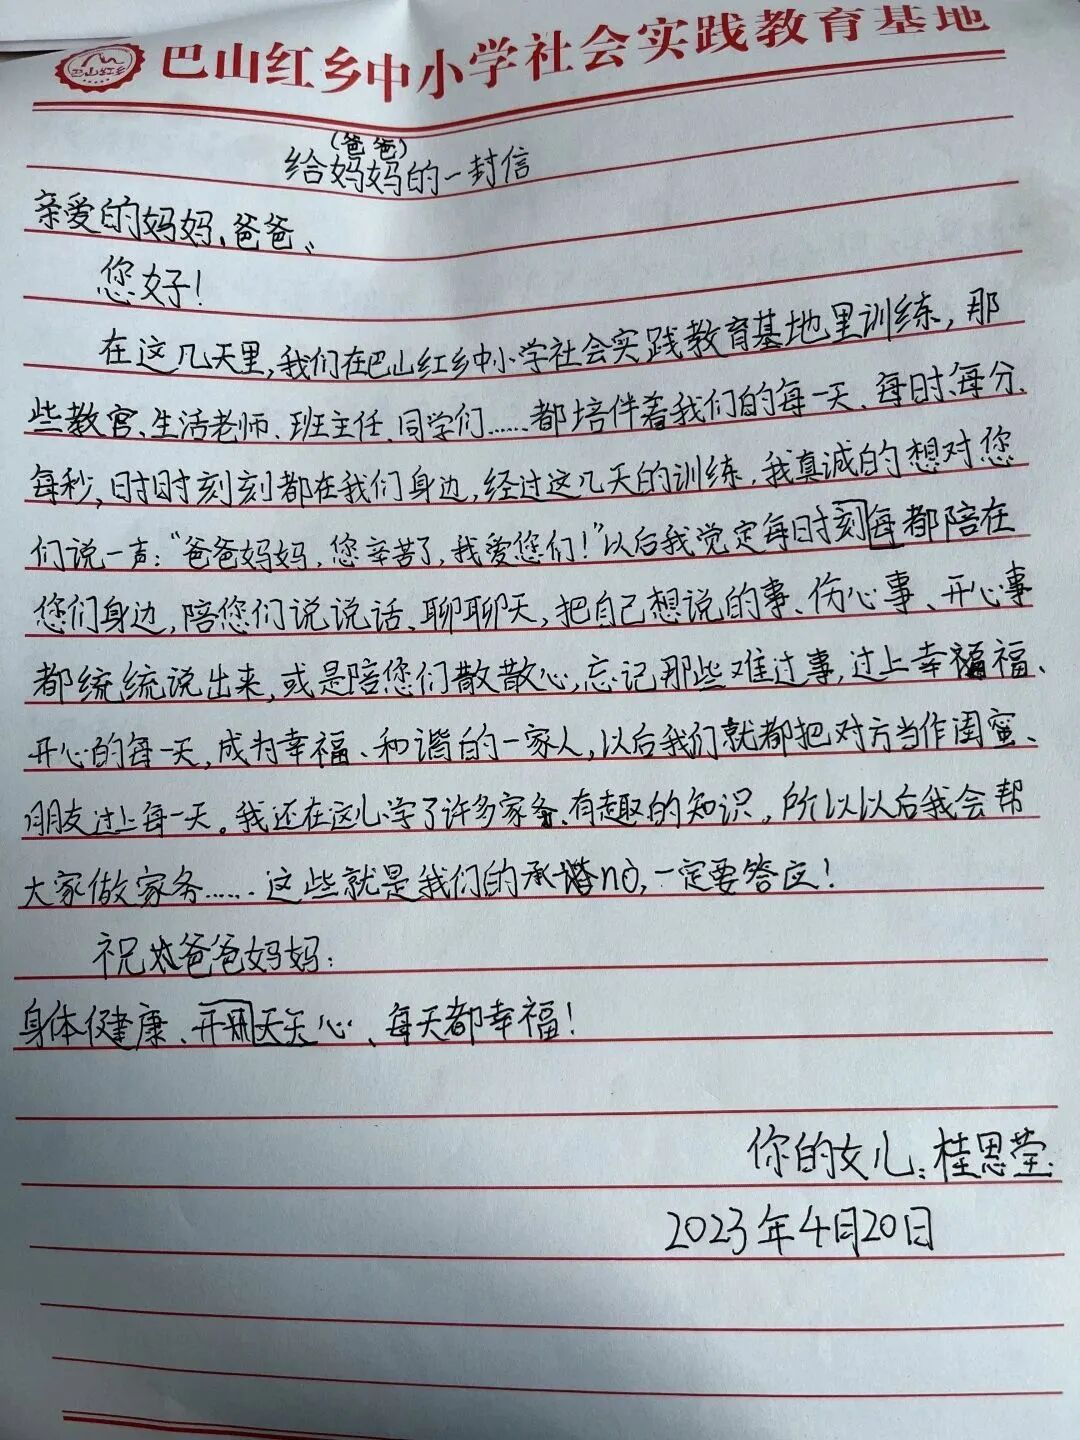 巴山红乡
巴山红乡中小学社会实践教育基地
(爸爸)
给妈妈的一封信
亲爱的妈妈、爸爸、
您好！
在这几天里,我们在巴山红乡中小学社会实践教育基地里训练,那
些教官、生活老师、班主任、同学们……都培伴着我们的每一天、每时、每分、
每秒,时时刻刻都在我们身边,经过这几天的训练,我真诚的想对您
们说一声:“爸爸妈妈,您辛苦了,我爱您们!”以后我觉定每时刻每都陪在
您们身边,陪您们说说话、聊聊天,把自己想说的事、伤心事、开心事
都统统说出来,或是陪您们散散心,忘记那些难过事,过上幸福、
开心的每一天,成为幸福、和谐的一家人,以后我们就都把对方当作闺蜜、
朋友过上每一天。我还在这儿学了许多家务、有趣的知识,所以以后我会帮
大家做家务……这些就是我们的承nò,一定要答应!
祝爸爸妈妈:
身体健康、开天天心、每天都幸福!
你的女儿:桂思莹
2023年4月20日